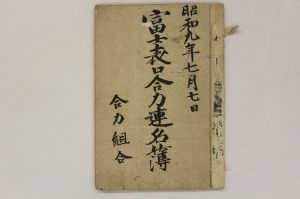 昭和九年七月七日
富士表口合力連名簿
合力組合